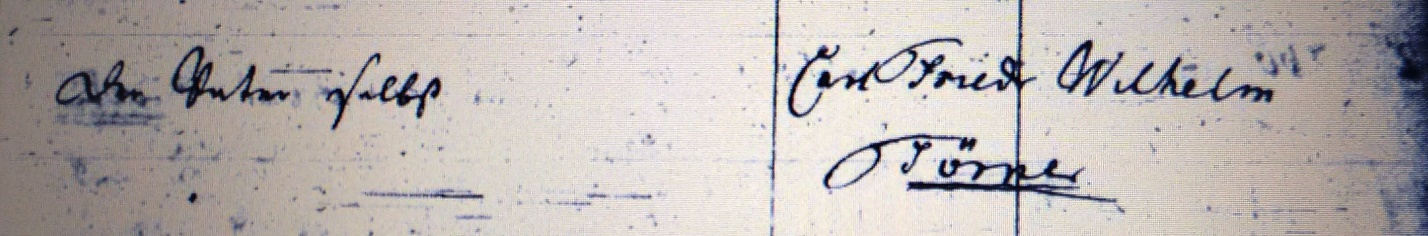 Der Vater selbst
Carl Friedr Wilhelm
Törper